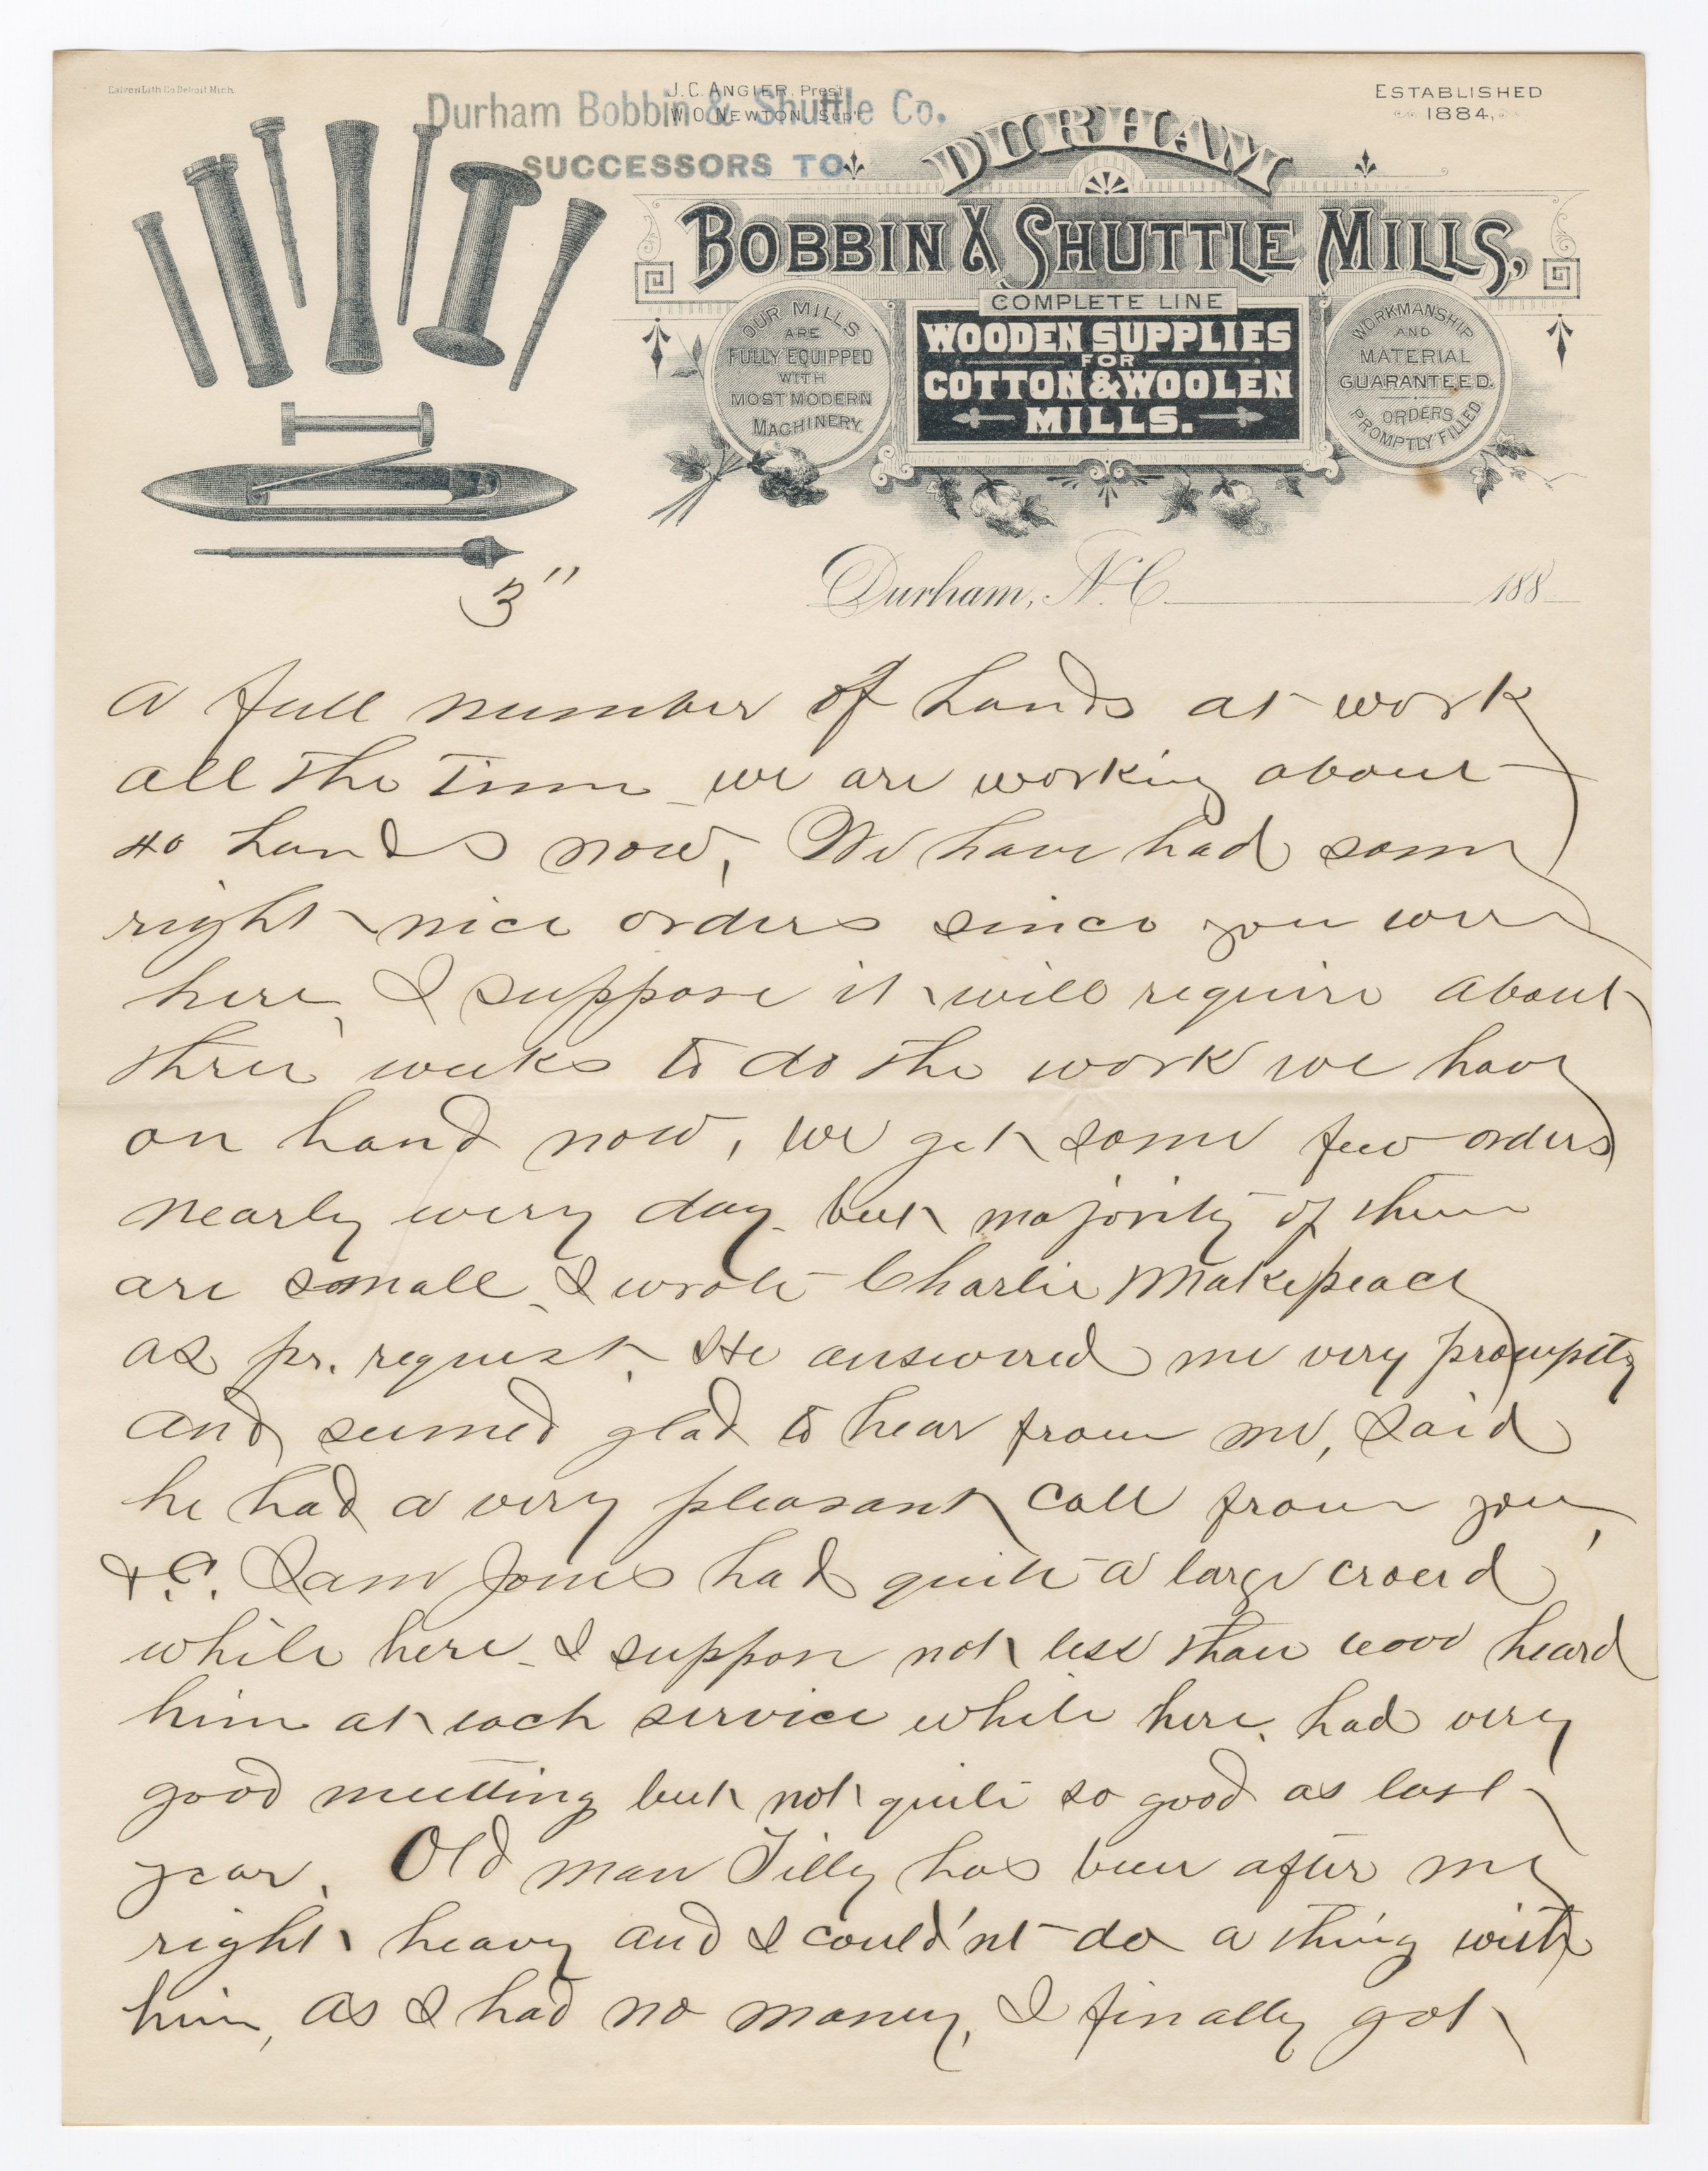 Calvert Lith Co Detroit Mich.
J. C. ANGIER, Prest.
W. O. NEWTON, Sup't.
Durham Bobbin & Shuttle Co.
SUCCESSORS TO
ESTABLISHED
1884.
DURHAM
BOBBIN & SHUTTLE MILLS,
COMPLETE LINE
WOODEN SUPPLIES
FOR
COTTON & WOOLEN
MILLS.
OUR MILLS
ARE
FULLY EQUIPPED
WITH
MOST MODERN
MACHINERY.
WORKMANSHIP
AND
MATERIAL
GUARANTEED.
ORDERS
PROMPTLY FILLED
Durham, N.C. 188
3"
a full number of hands at work
all the time - we are working about
40 hands now, We have had some
right nice orders since you were
here, I suppose it will require about
three weeks to do the work we have
on hand now, we get some few orders
nearly every day - but majority of them
are small, I wrote Charlie Makepeace
as pr. request, He answered me very promptly
and seemed glad to hear from me, Said
he had a very pleasant call from you,
&c. Sam Jones had quite a large crowd
while here - I suppose not less than heard
him at each service while here, had very
good meetting but not quite so good as last
year. Old man Tilly has been after me
right heavy and I could'nt do a thing with
him, as I had no money, I finally got